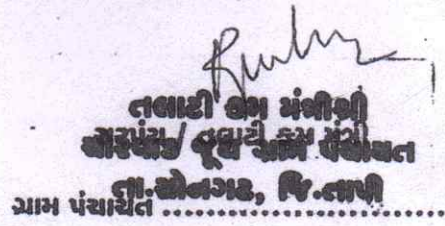 તલાટી કમ મંત્રીશ્રી
સરપંચ / તલાટી કમ મંત્રી
જૂથ ગ્રામ પંચાયત
તા.સોનગઢ, જિ.તાપી
ગ્રામ પંચાયત ........................